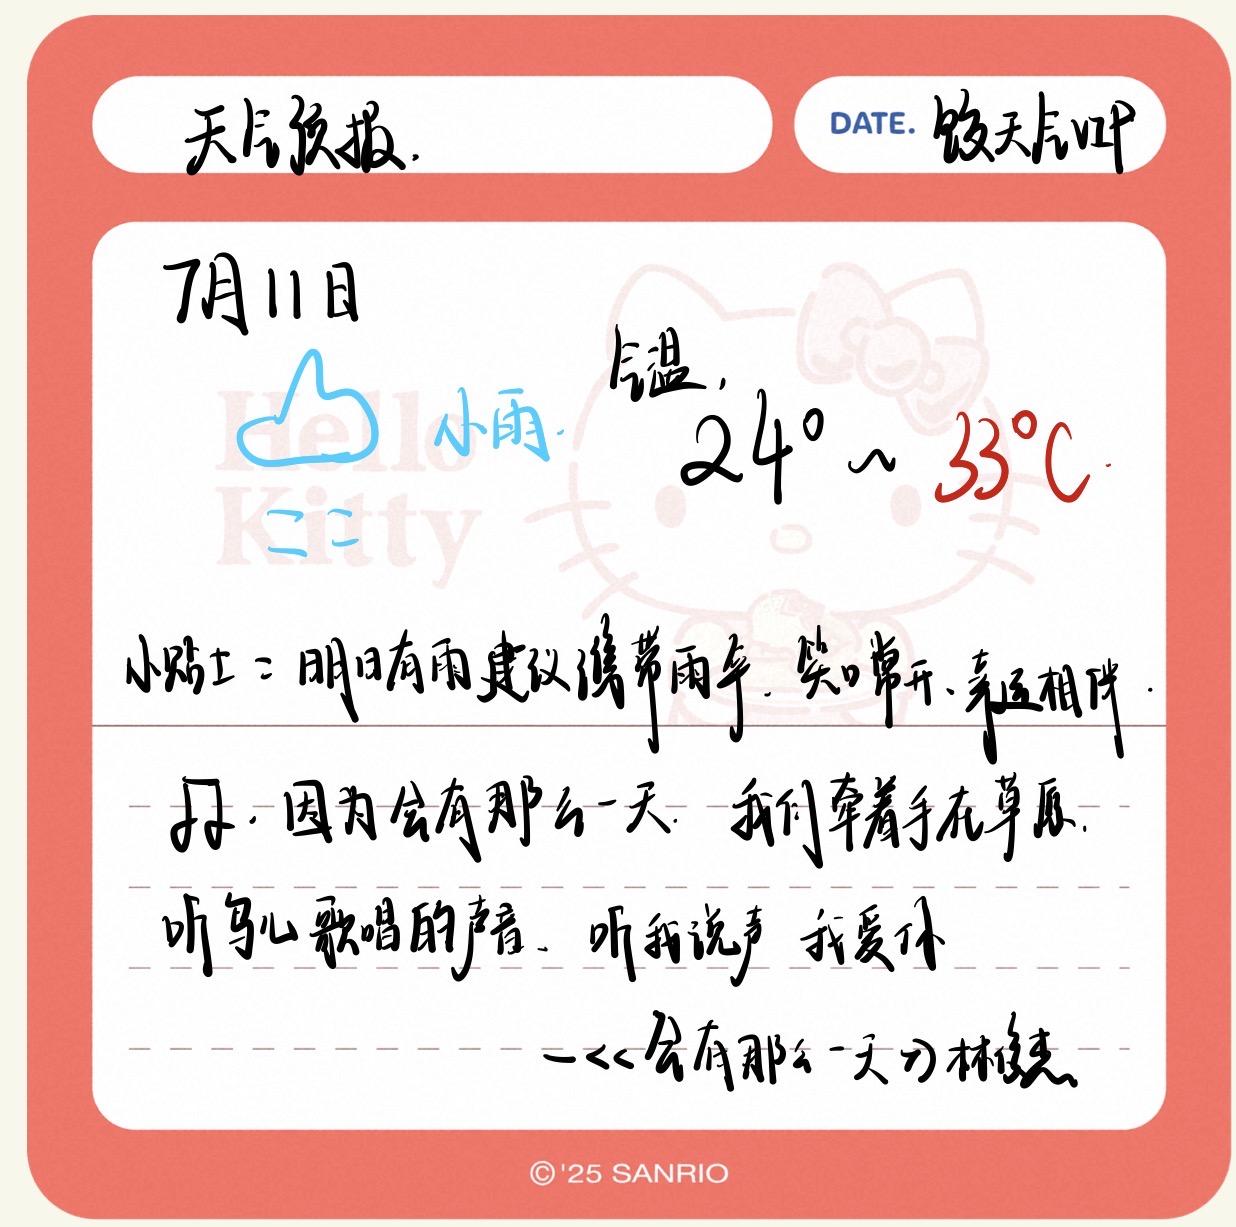 天气预报.
DATE. 饺天气吖
7月11日
小雨.
气温,
24° ~ 33°C.
Hello
Kitty
小贴士：明日有雨建议携带雨伞. 笑口常开、幸运相伴.
♫. 因为会有那么一天. 我们牵着手在草原.
听鸟儿歌唱的声音. 听我说声 我爱你
—<<会有那么一天>> 林俊杰
© '25 SANRIO